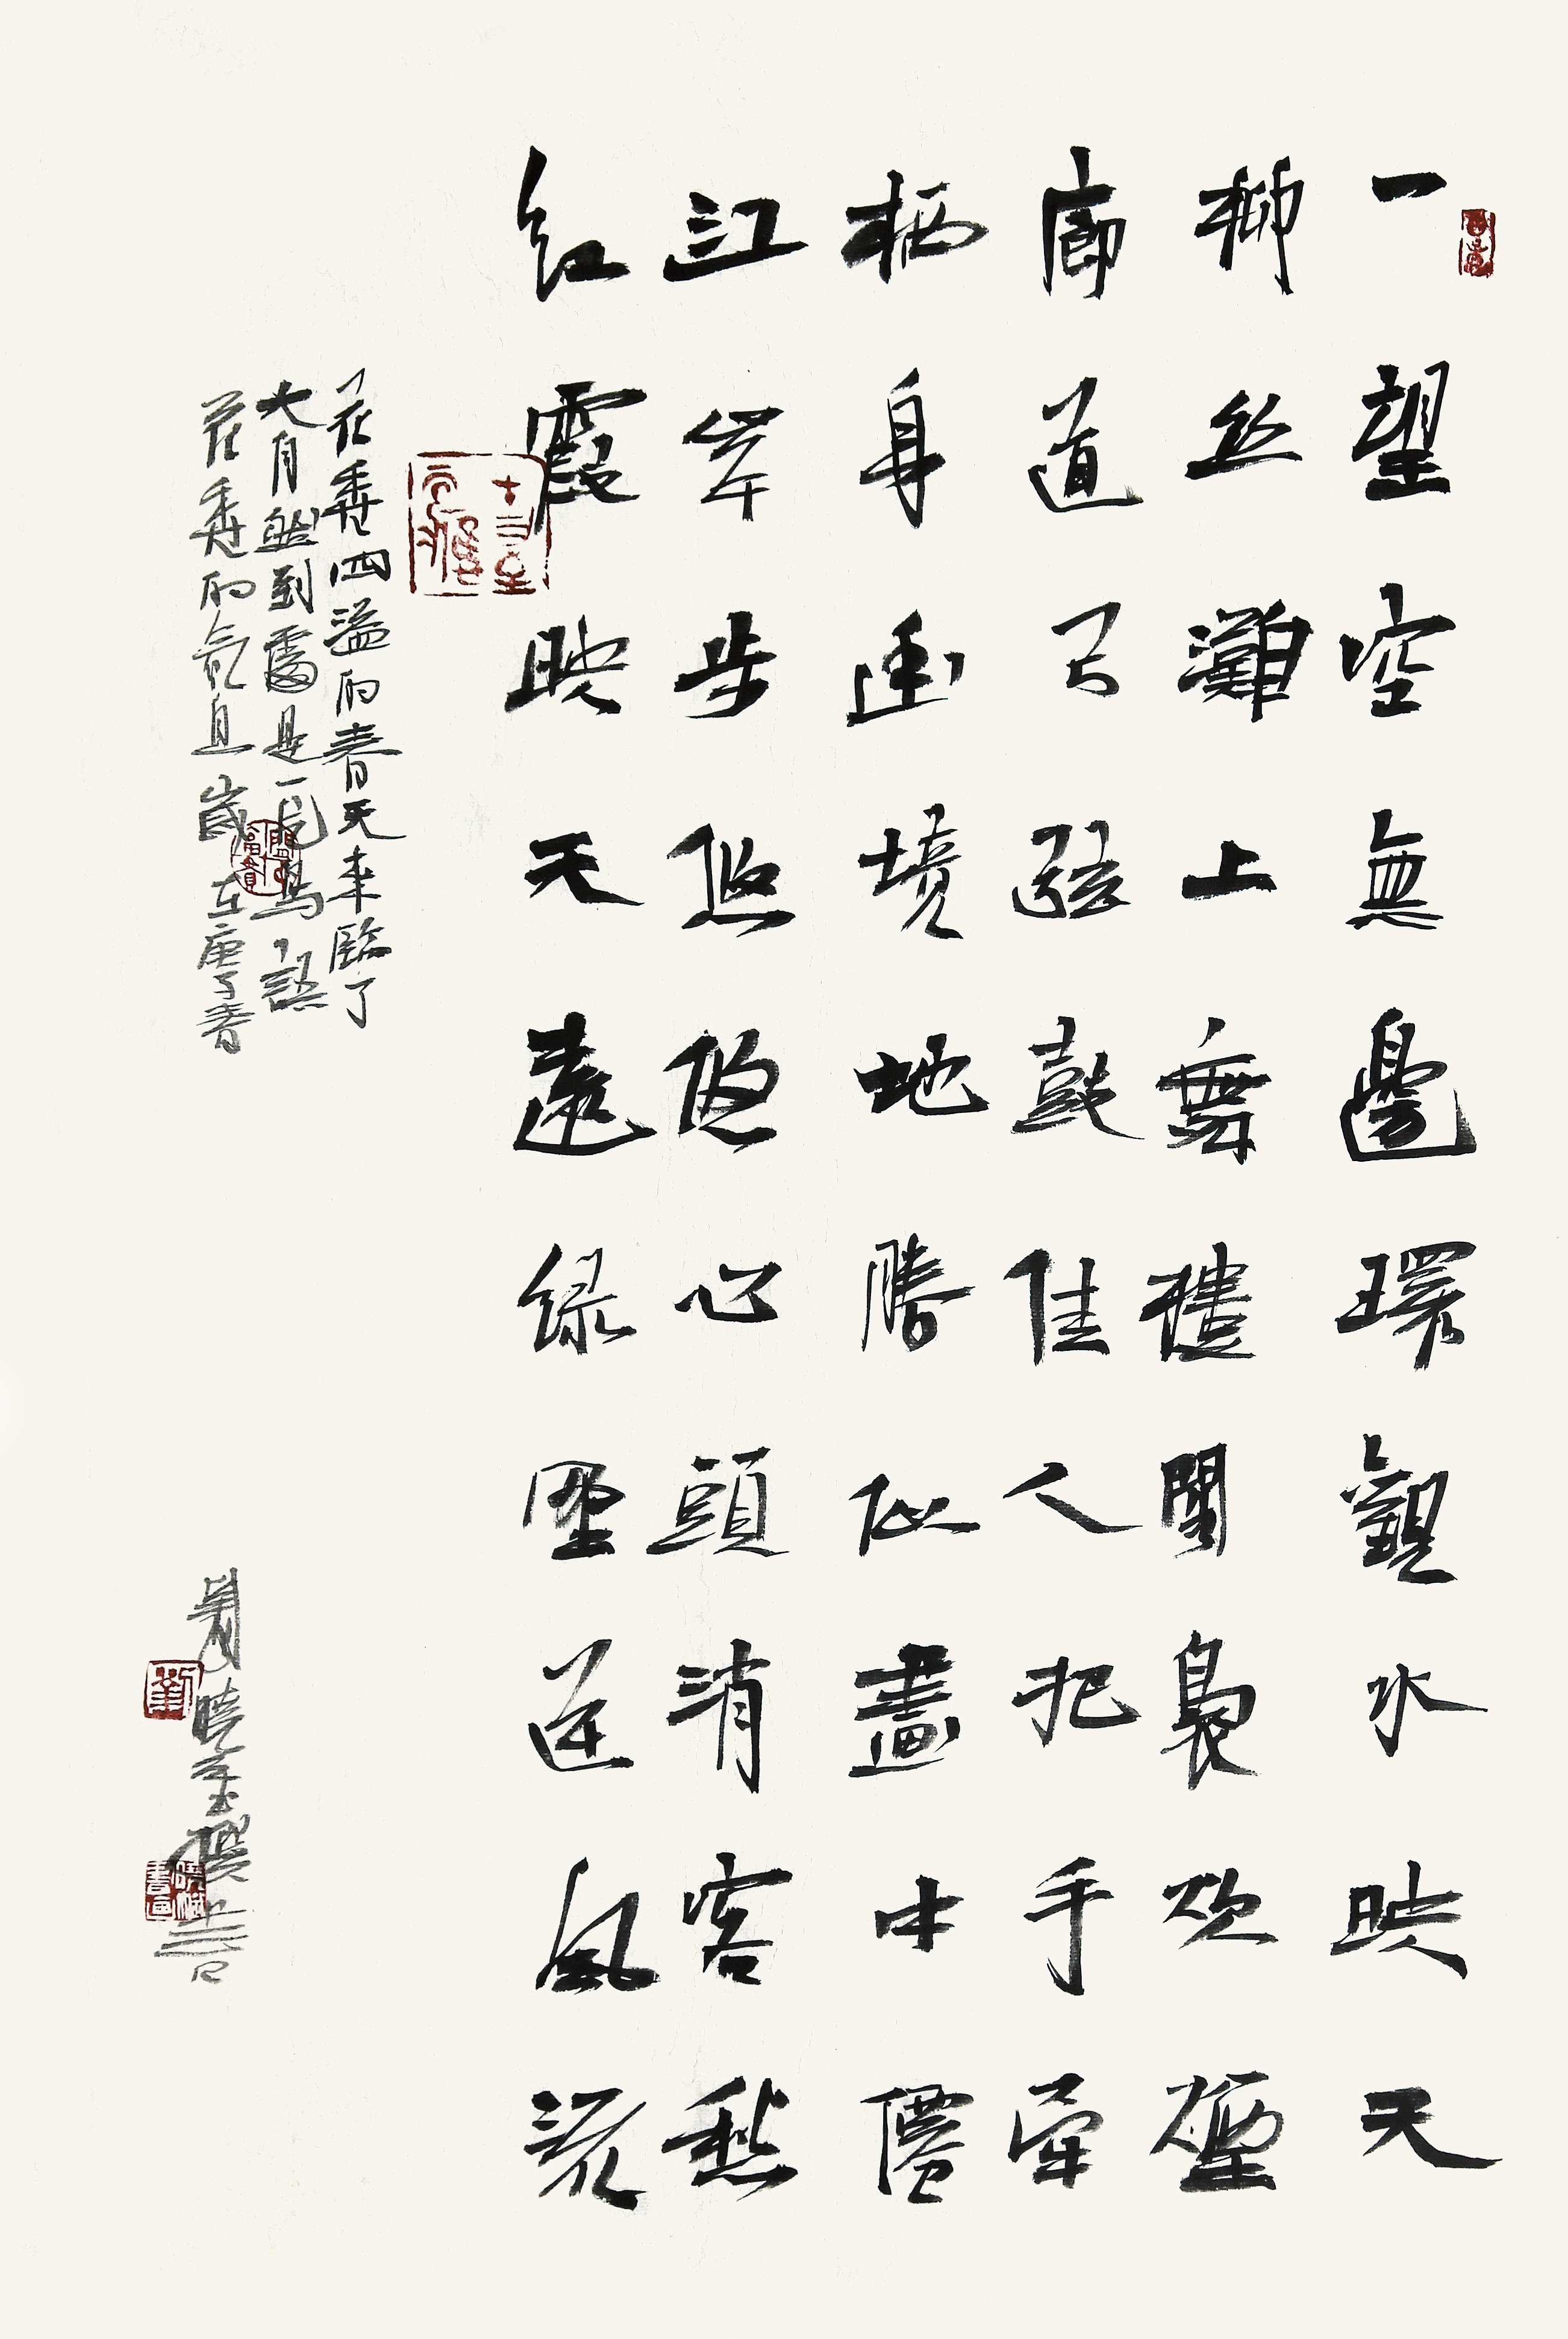 一望空無邊環觀水映天
柳絲灘上舞樓閣裊炊煙
廊道弓弦鼓佳人把手牽
栖身幽境地勝似畫中僊
江岸步悠悠心頭消客愁
紅霞映天遠绿堙逆風流
花香四溢的春天来臨了
大自然到處是一片鳥語
花香的氣息歲在庚子春
劉
劉曉
書畫